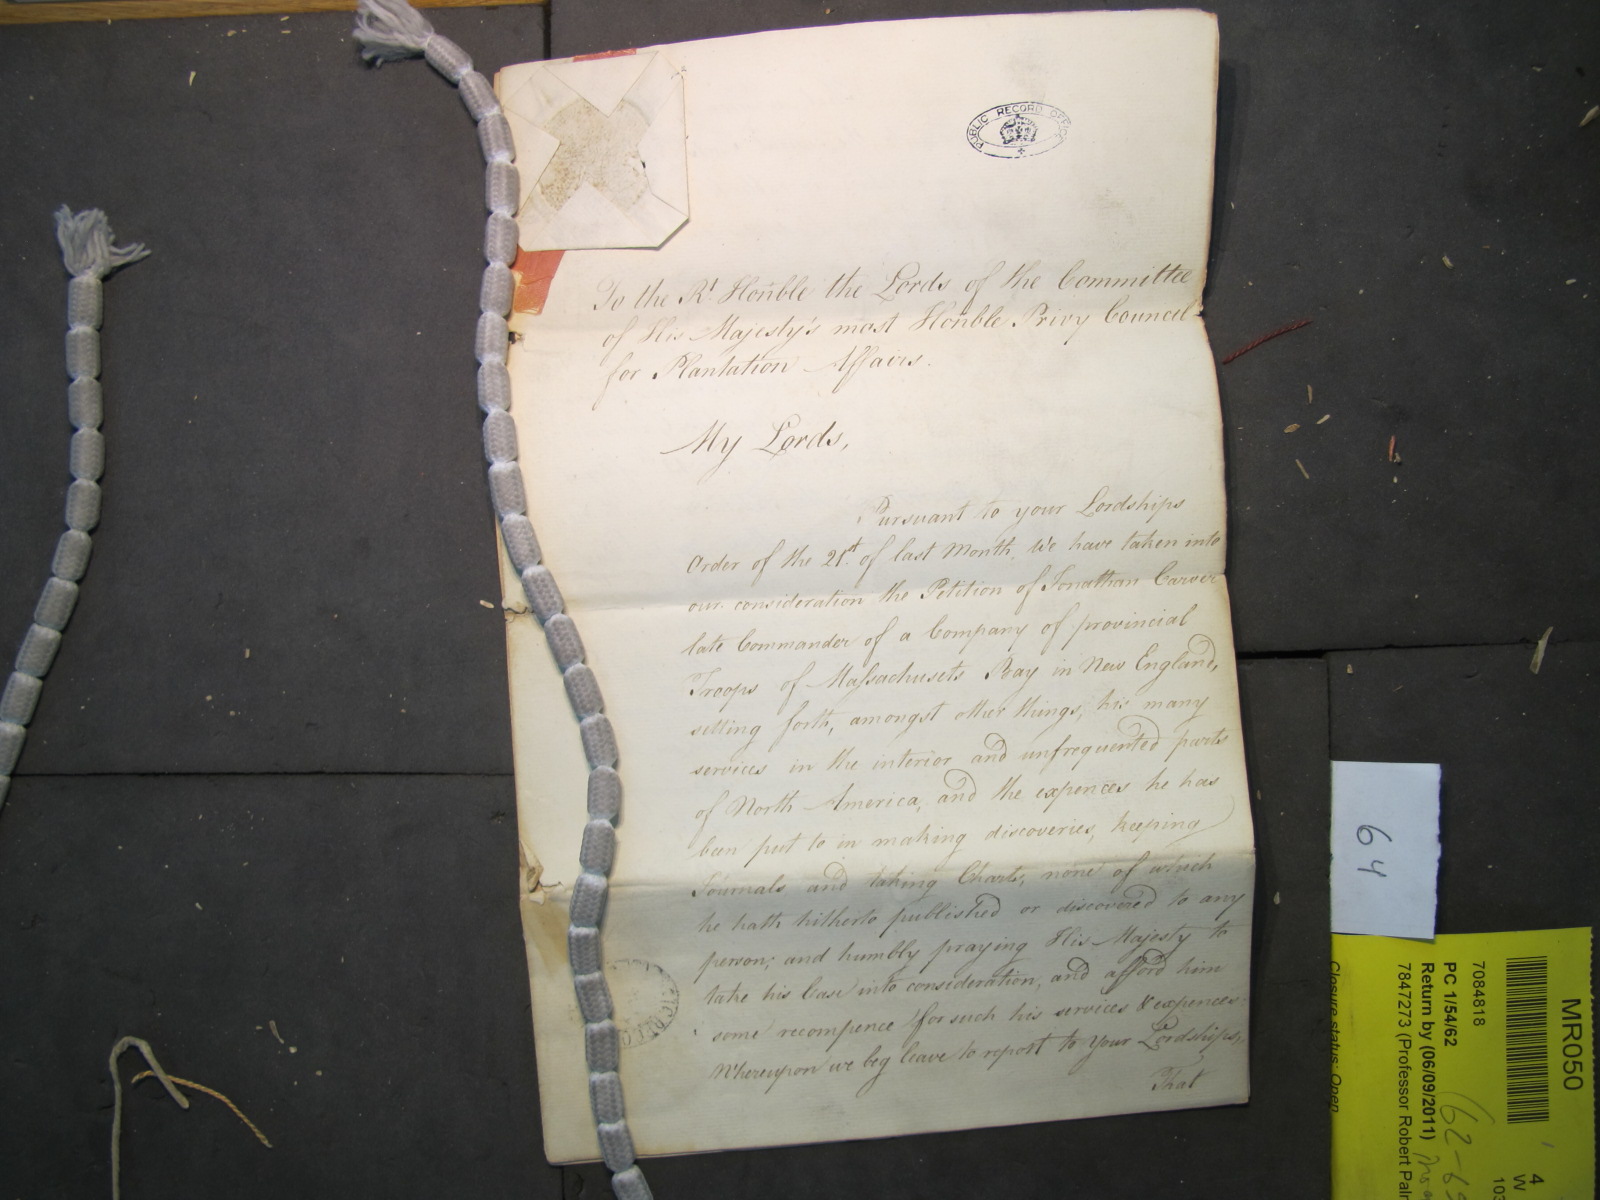 PUBLIC RECORD OFFICE
To the Rt. Honble the Lords of the Committee
of His Majesty's most Honble Privy Council
for Plantation Affairs.
My Lords,
Pursuant to your Lordships
Order of the 21st. of last Month, We have taken into
our consideration the Petition of Jonathan Carver
late Commander of a Company of provincial
Troops of Massachusets Bay in New England,
setting forth, amongst other things, his many
services in the interior and unfrequented parts
of North America, and the expences he has
been put to in making discoveries, keeping
Journals and taking Charts, none of which
he hath hitherto published or discovered to any
person; and humbly praying His Majesty to
take his Case into consideration, and afford him
some recompence for such his services & expences:
Whereupon we beg leave to report to Your Lordships,
That
64
MR050
7084818
PC 1/54/62
Return by (06/09/2011)
7847273 (Professor Robert Pal
Closure status: Open
62-6
4
W
103